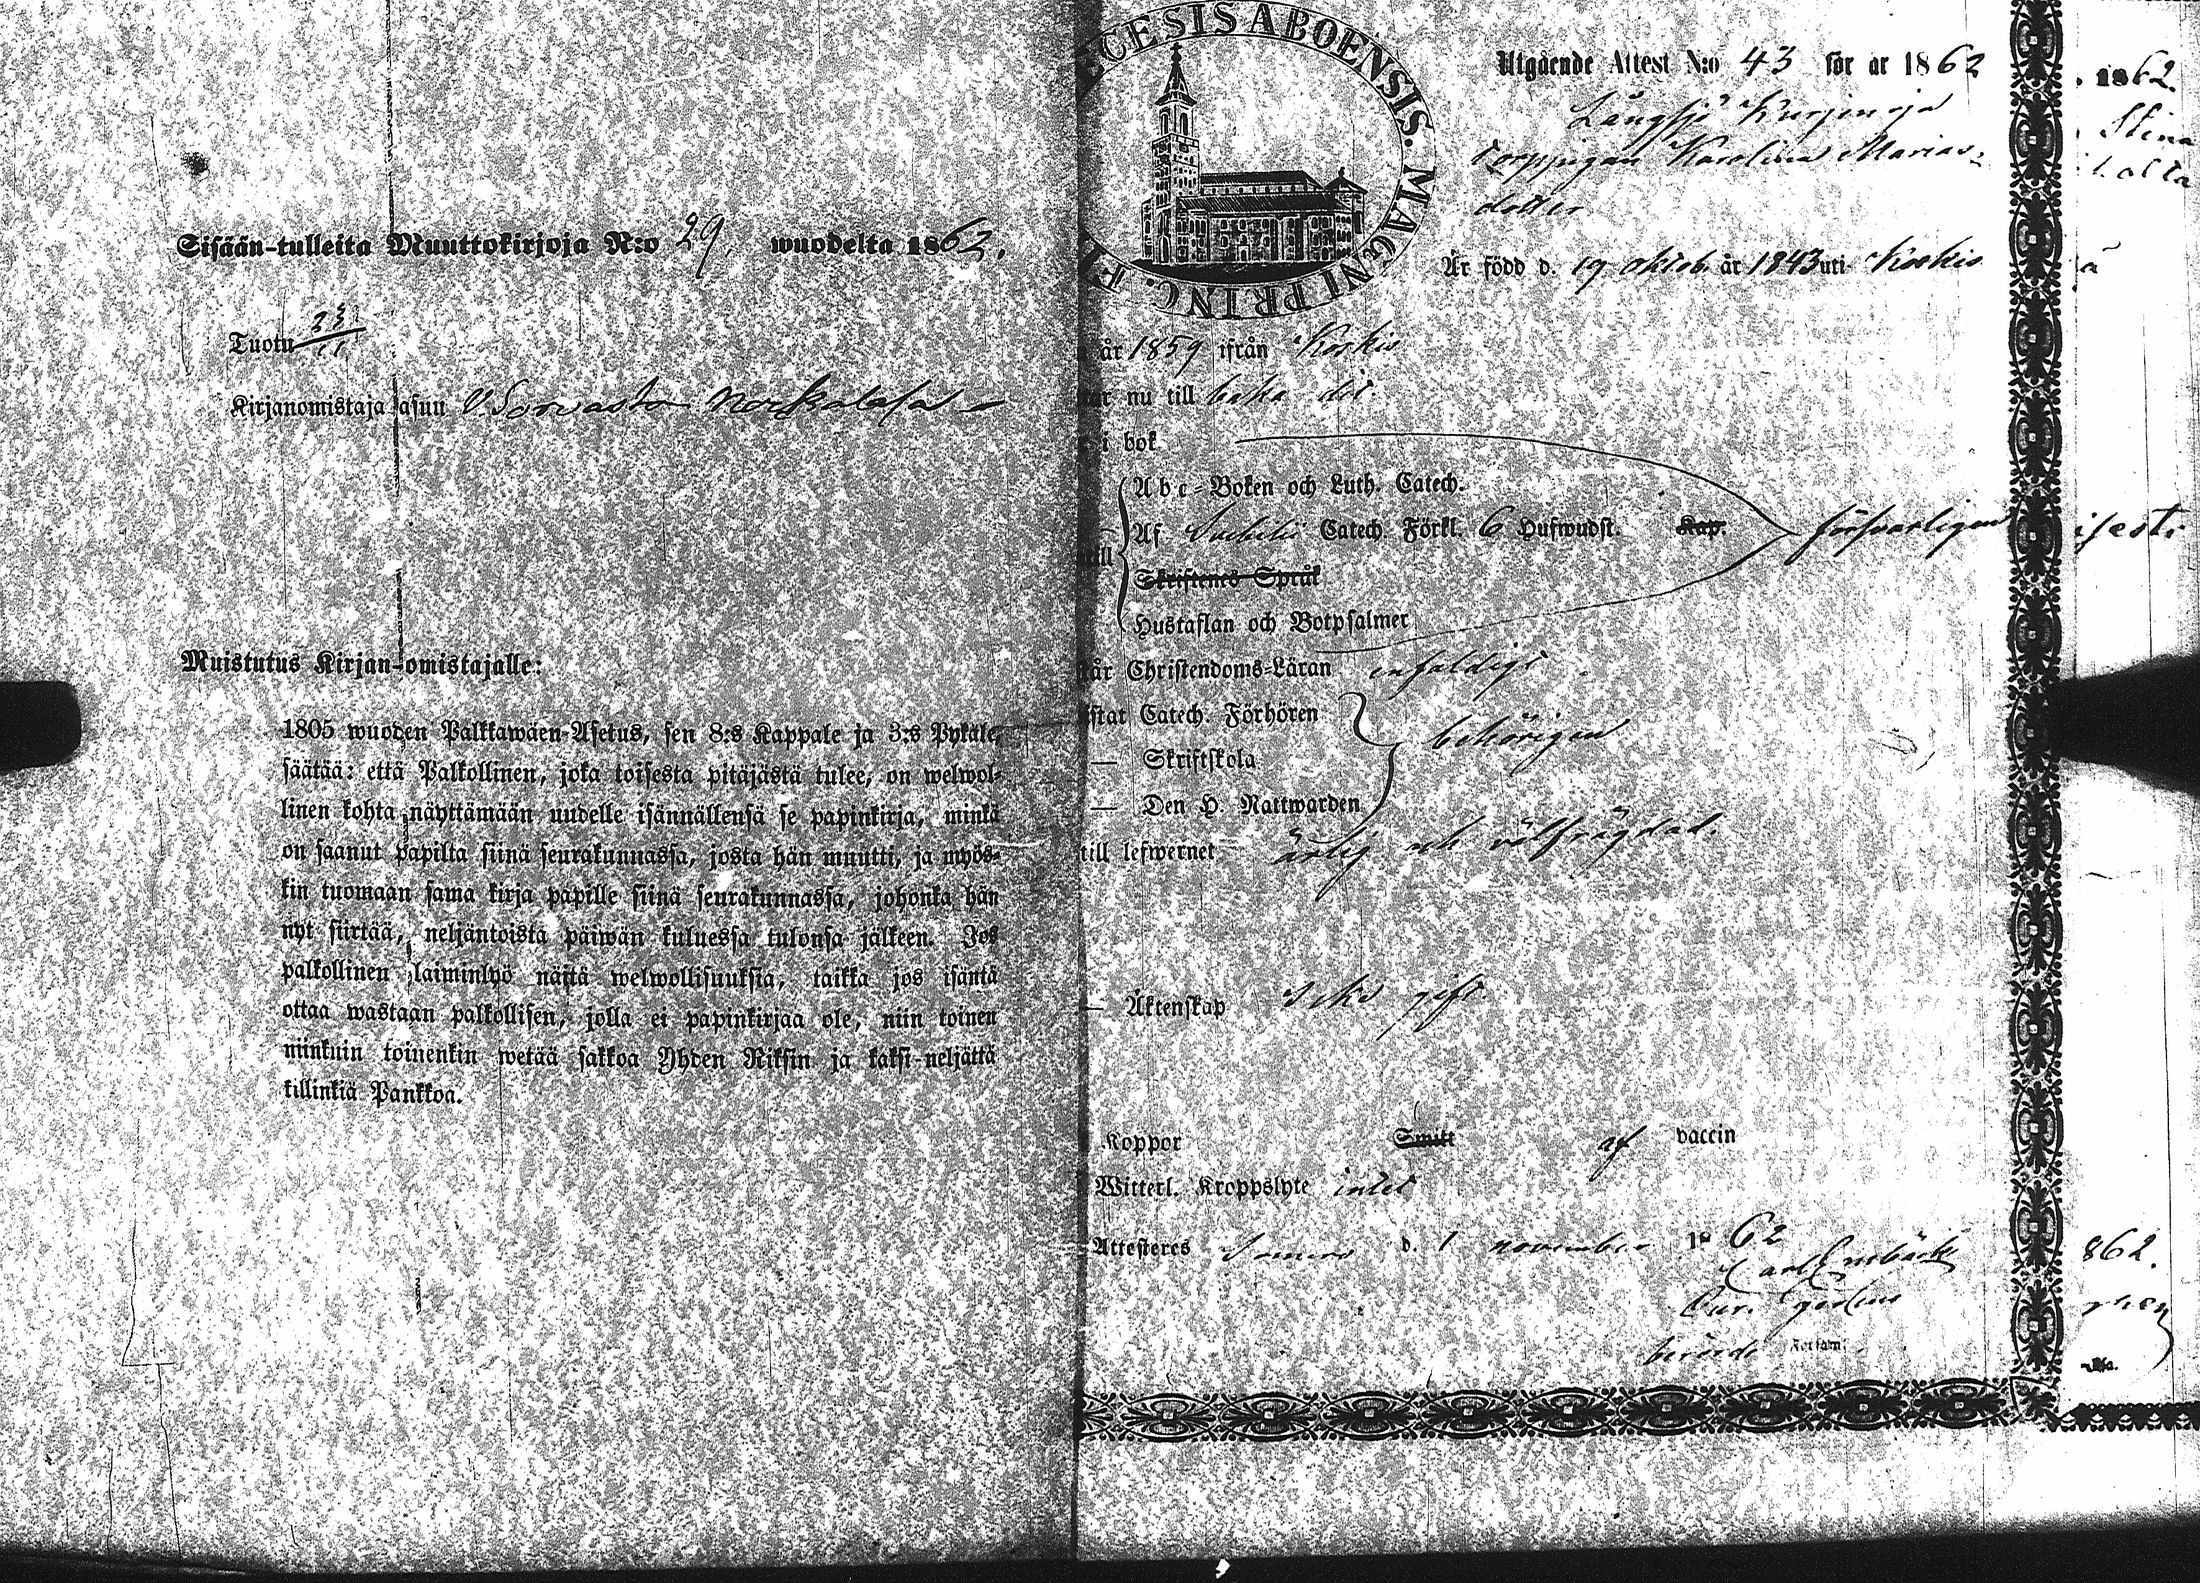 Sisään-tulleita Muuttokirjoja N:o 29. wuodelta 1862.
Tuotu 23/11
Kirjanomistaja asuu
Muistutus Kirjan-omistajalle:
1805 wuoden Palkkawäen-Asetus, sen 8:s Kappale ja 3:s Pykäle,
säätää: että Palkollinen, joka toisesta pitäjästä tulee, on welwol-
linen kohta näyttämään uudelle isännällensä se papinkirja, minkä
on saanut papilta siinä seurakunnassa, josta hän muutti, ja myös-
kin tuomaan sama kirja papille siinä seurakunnassa, johonka hän
nyt siirtää, neljäntoista päiwän kuluessa tulonsa jälkeen. Jos
palkollinen laiminlyö näitä welwollisuuksia, taikka jos isäntä
ottaa wastaan palkollisen, jolla ei papinkirjaa ole, niin toinen
niinkuin toinenkin wetää sakkoa Yhden Riksin ja kaksi-neljättä
killinkiä Pankkoa.
ECESIS ABOENSIS. MAGNI PRINC. F
Utgående Attest N:o 43 för år 1862
Långsjö Kurjenoja
torppigan Karolina Marias-
dotter
Är född d. 19 oktob. år 1843 uti Koskis
år 1859 ifrån Koskis
nu till baka dit.
i bok
A b c-Boken och Luth. Catech.
Af Svebelii Catech. Förkl. 6 Hufwudst. Kap. försvarligen
Skriftenes Språk
Hustaflan och Botpsalmer
år Christendoms-Läran enfaldigt
istat Catech. Förhören
— Skriftskola behörigen
— Den H. Nattwarden
till lefwernet ärlig och välfrägdad.
— Äktenskap icke gift.
Koppor Smitt af vaccin
Witterl. Kroppslyte intet
Attesteres Somero d. 1 november 1862
Carl Enebäck
1862.
Stina
862.